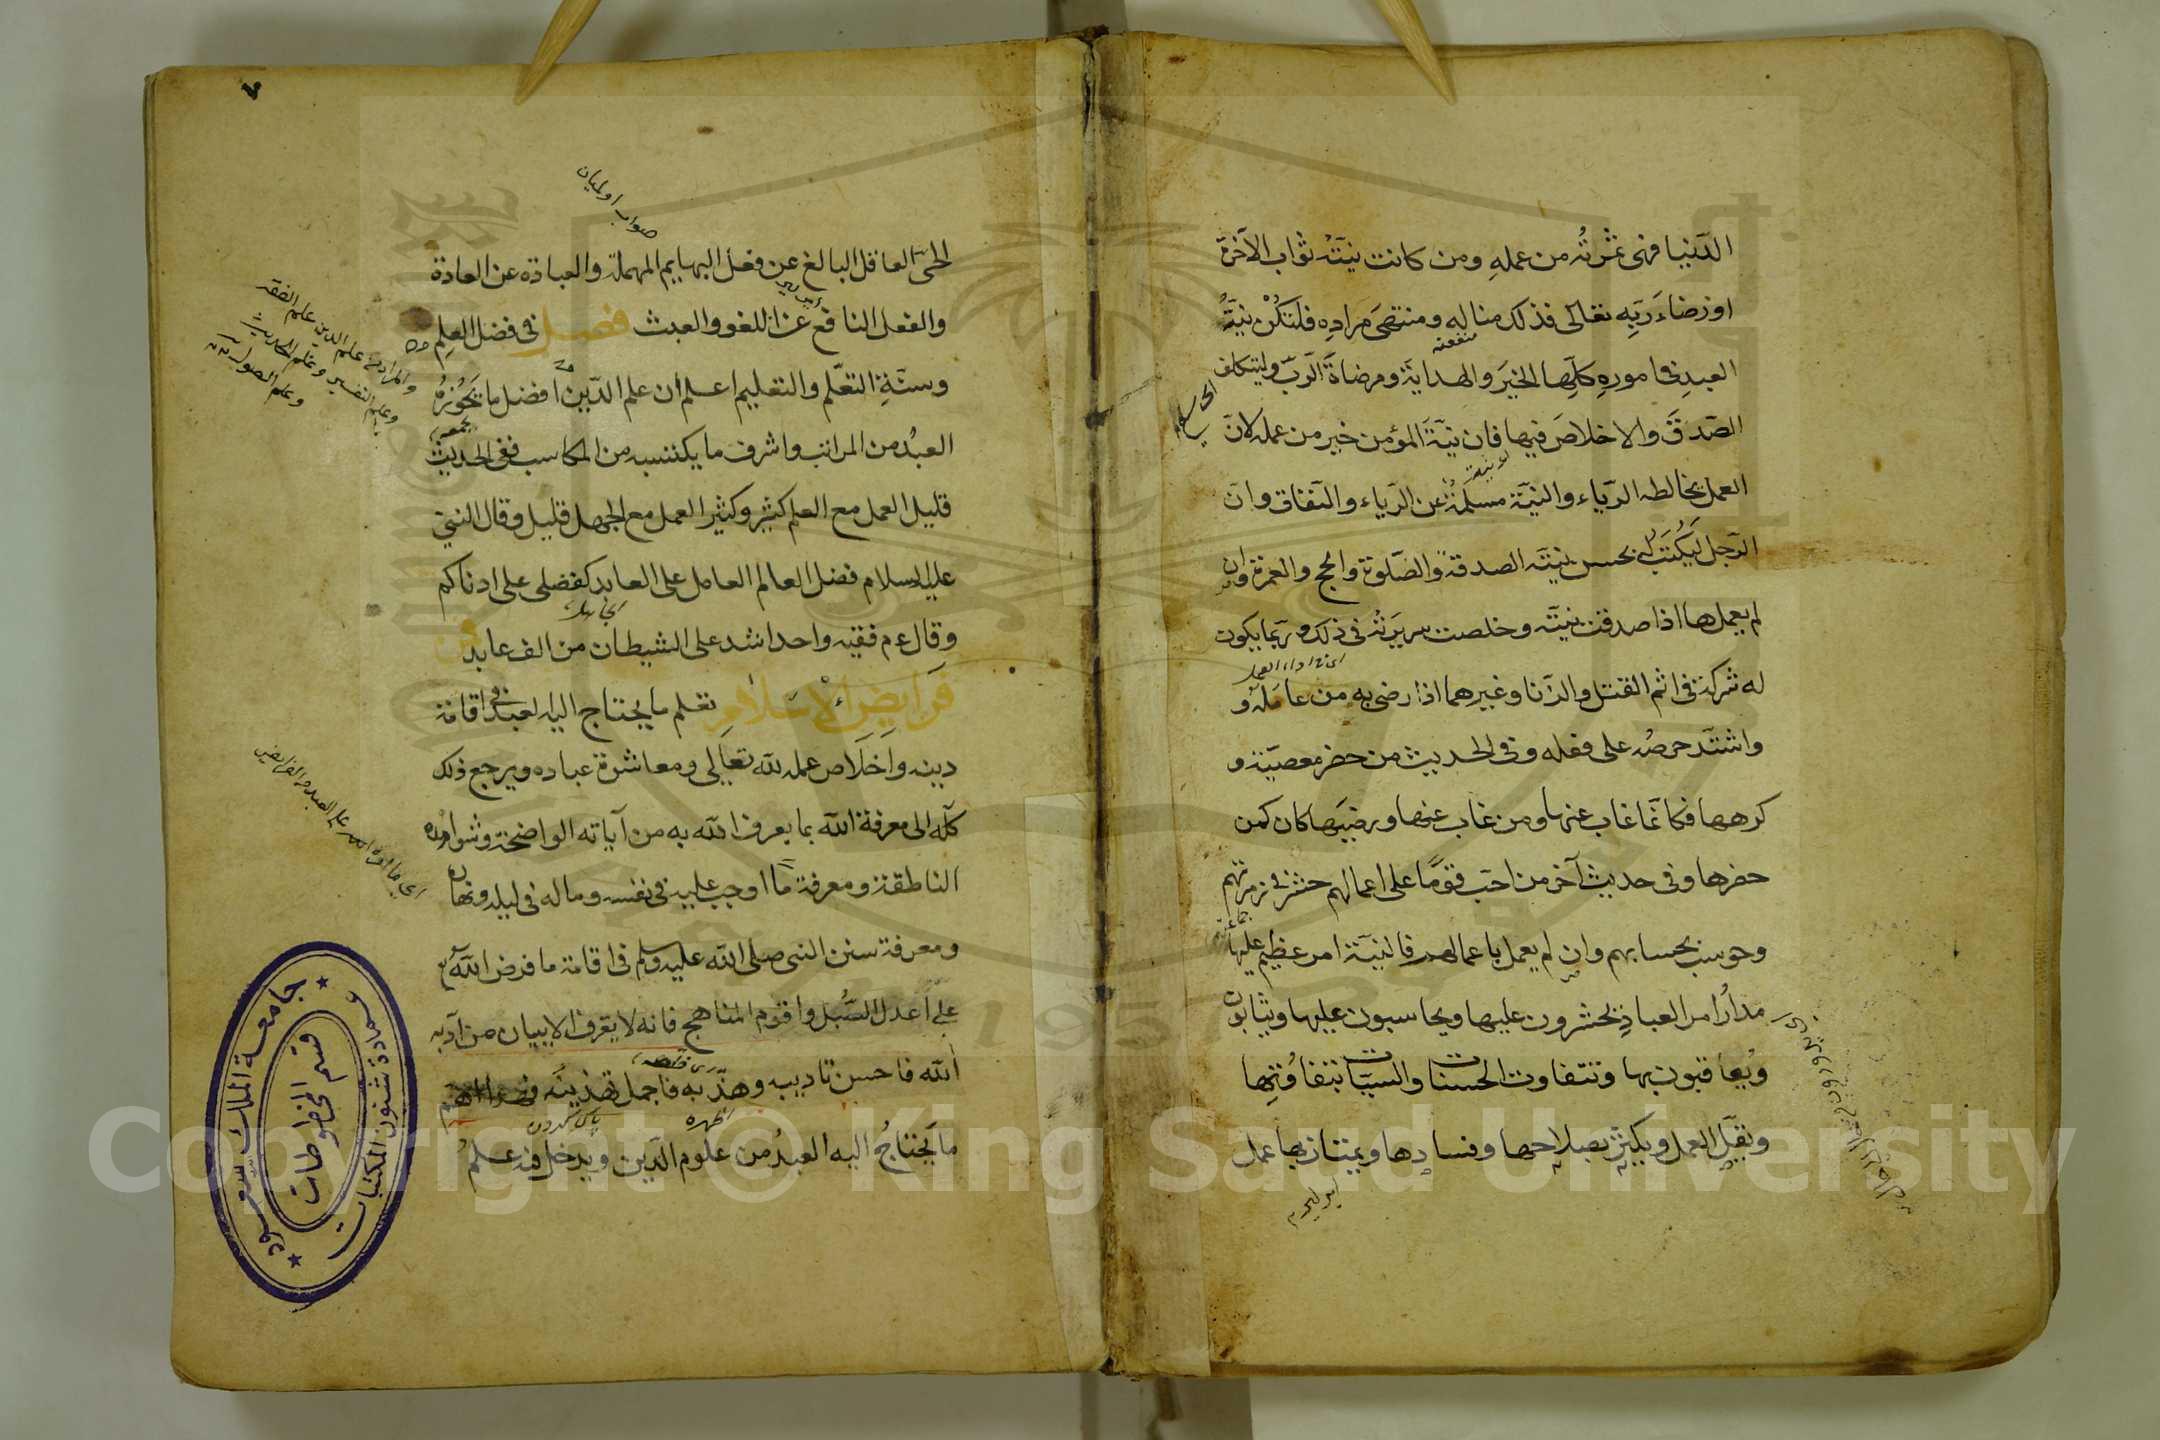 الدنيا فهى ثمرته من عمله ومن كانت نيته ثواب الآخرة
او رضاء ربه تعالى فذلك مناله ومنتهى مراده فلتكن نية
العبد فى اموره كلها الخير والهداية ومرضاة الرب وليتكلف
الصدق والاخلاص فيها فان نية المؤمن خير من عمله لان
العمل يخالطه الرياء والنية مسلمة عن الرياء والنفاق وان
الرجل ليكتب له بحسن نيته الصدقة والصلوة والحج والعمرة وان
لم يعملها اذا صدقت نيته وخلصت سريرته فى ذلك وربما يكون
له شركة فى اثم القتل والزنا وغيرهما اذا رضى به من عامله و
واشتد حرصه على فعله وفى الحديث من حضر معصية و
كرهها فكانما غاب عنها ومن غاب عنها ورضيها كان كمن
حضرها وفى حديث آخر من احب قوما على اعمالهم حشر فى زمرتهم
جماعة
وحوسب بحسابهم وان لم يعمل باعمالهم فالنية امر عظيم عليها
مدار امر العباد يحشرون عليها ويحاسبون عليها ويثابون
ويعاقبون بها وتتفاوت الحسنات والسيئات بتفاوتها
ويقبل العمل ويكثر بصلاحها وفسادها ويمتاز بها عمل
صواب اولميان
الحى العاقل البالغ عن فعل البهايم المهملة والعبادة عن العادة
والفعل النافع عن اللغو والعبث فصل فى فضل العلم
وسنة التعلم والتعليم اعلم ان علم الدين افضل ما يحوزه
العبد من المراتب واشرف ما يكتسبه من المكاسب ففى الحديث
قليل العمل مع العلم كثير وكثير العمل مع الجهل قليل وقال النبى
عليه السلام فضل العالم العامل على العابد كفضلى على ادناكم
وقال ءم فقيه واحد اشد على الشيطان من الف عابد من
فرايض الاسلام تعلم ما يحتاج اليه العبد فى اقامة
دينه واخلاص عمله لله تعالى ومعاشرة عباده ويرجع ذلك
كله الى معرفة الله بما يعرف الله به من آياته الواضحة وشواهده
الناطقة ومعرفة ما اوجب عليه فى نفسه وماله فى ليله ونهاره
ومعرفة سنن النبى صلى الله عليه وسلم فى اقامة ما فرض الله
على اعدل السبل واقوم المناهج فانه لا يعرف الا ببيان من ادبه
الله فاحسن تاديبه وهذبه فاجمل تهذيبه
ما يحتاج اليه العبد من علوم الدين ويدخل فيه علم
والمراد من علم الدين علم الفقه
وعلم التفسير وعلم الحديث
وعلم الاصول
جامعة الملك سعود
عمادة شئون المكتبات
قسم المخطوطات
Copyright © King Saud University
1957